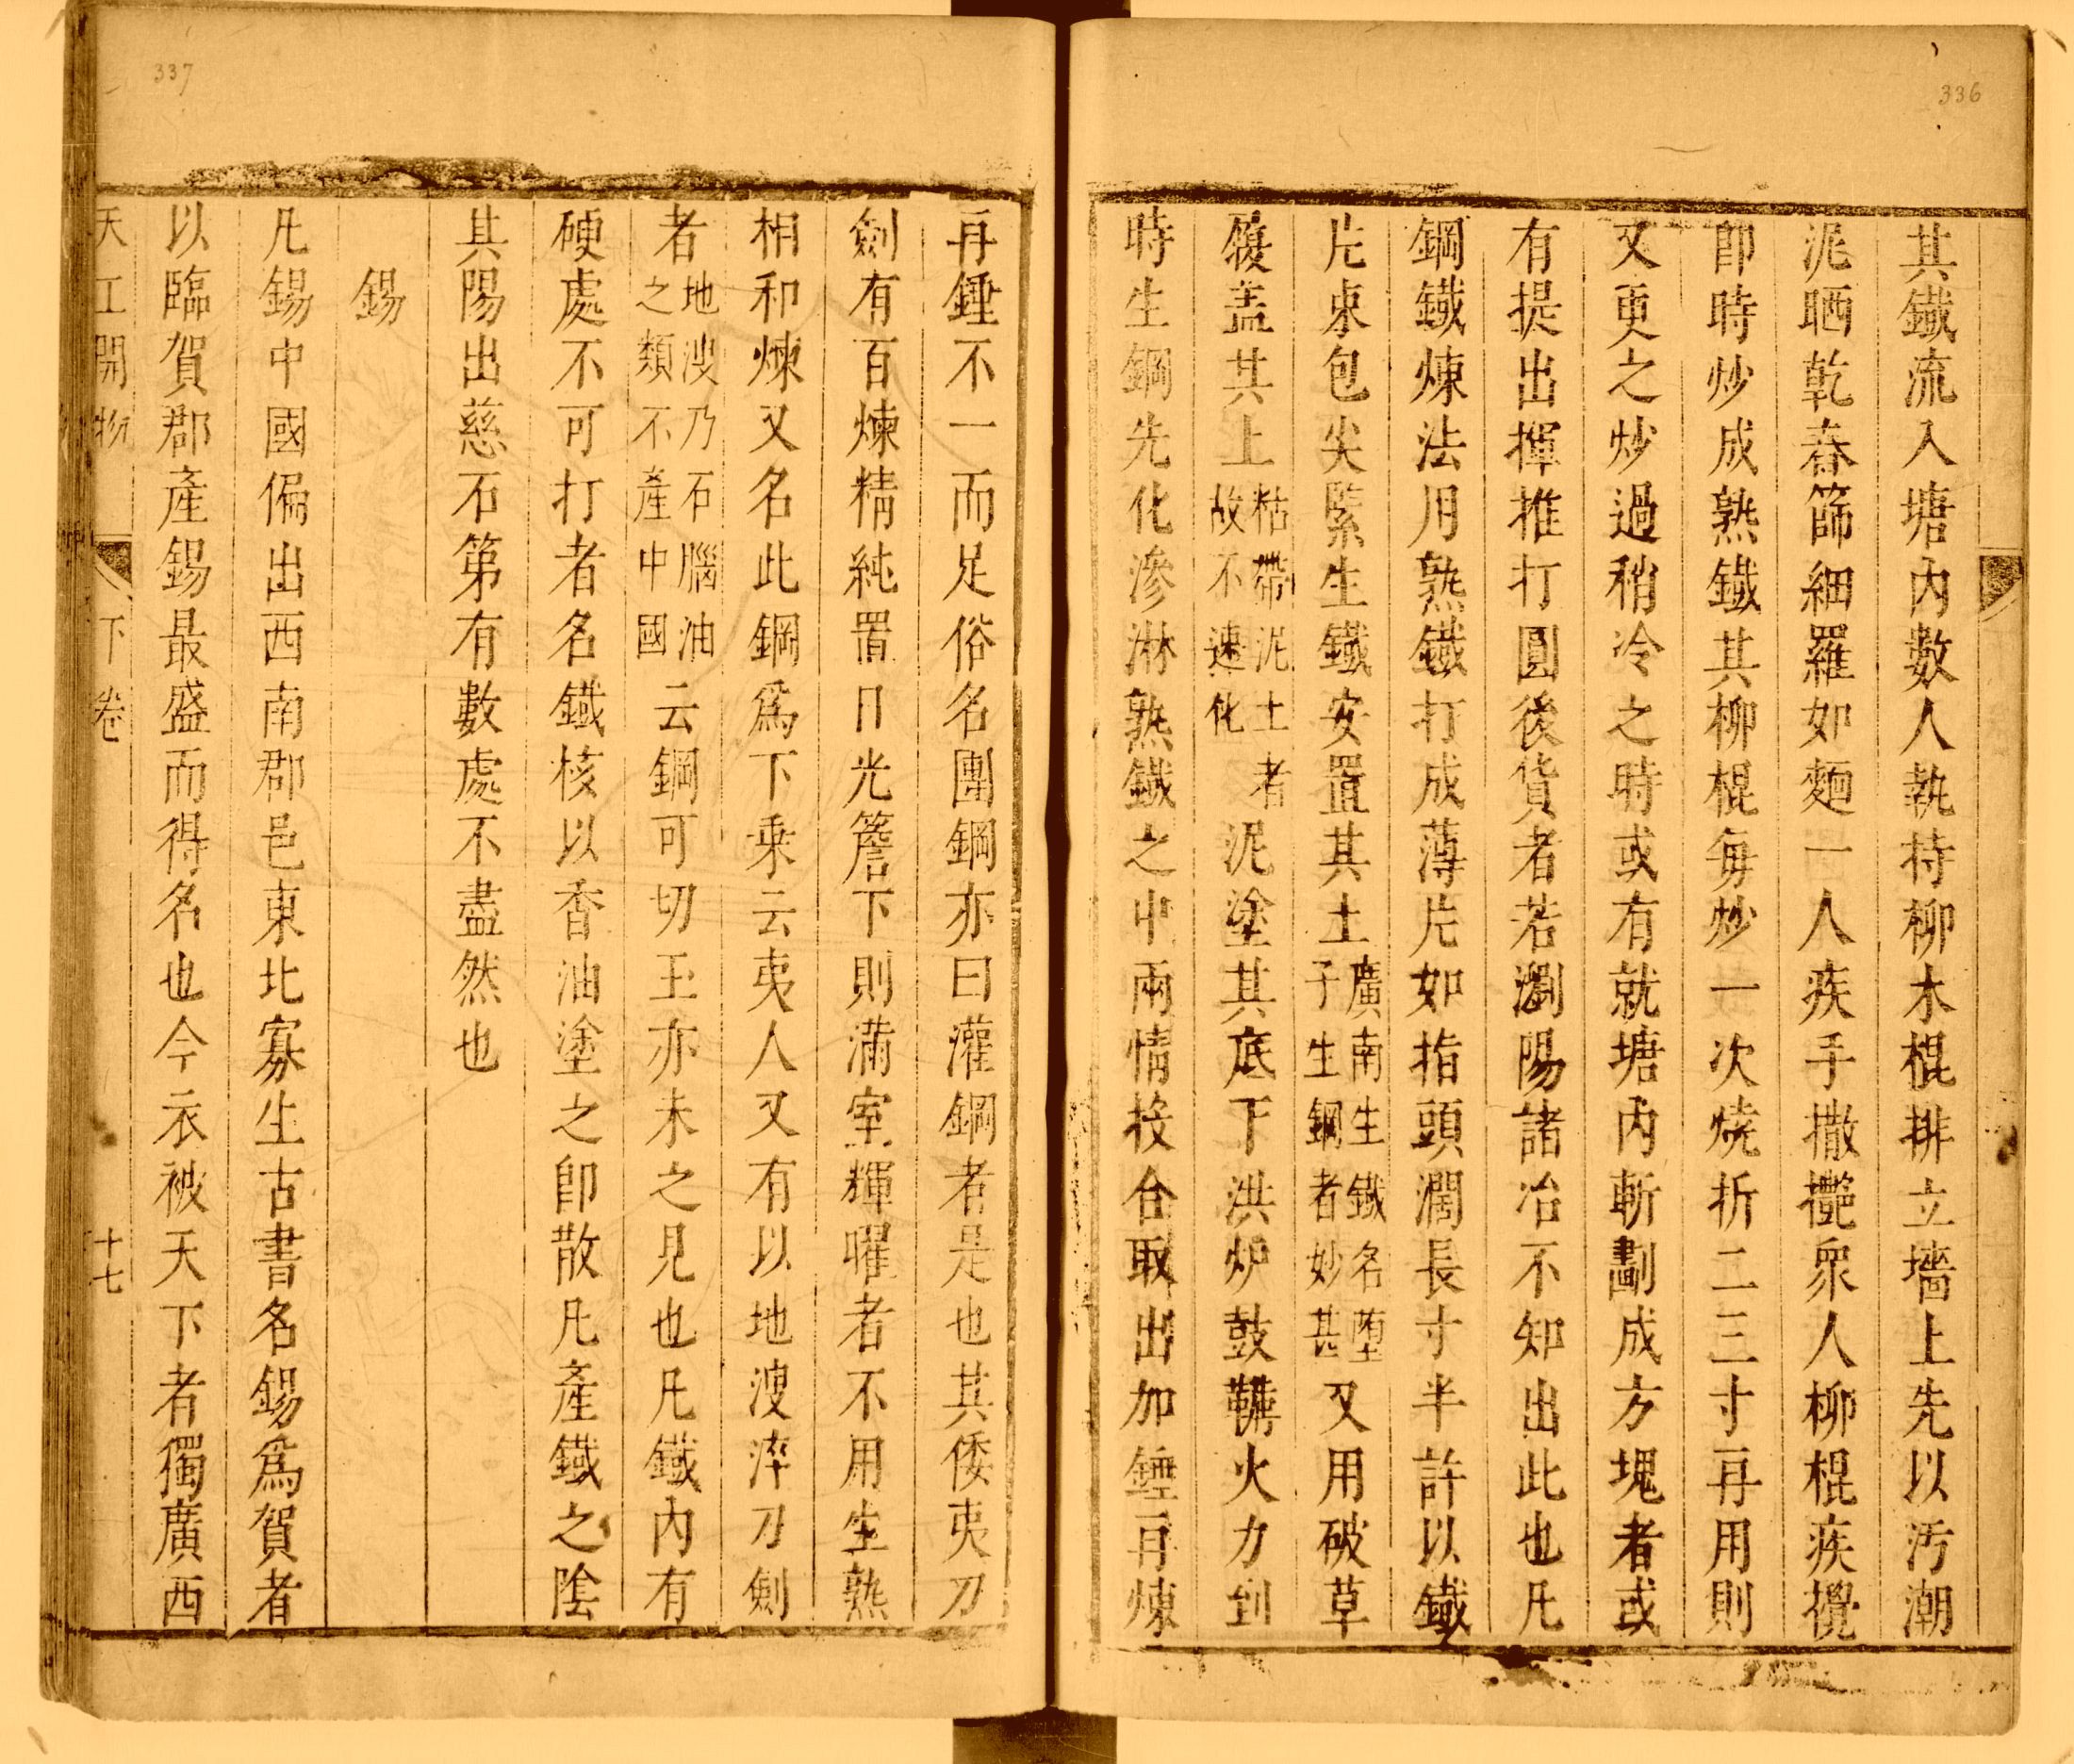 336
其鐵流入塘內數人執持柳木棍排立墻上先以汚潮
泥晒乾舂篩細羅如麵一人疾手撒㩐衆人柳棍疾攪
卽時炒成熟鐵其柳棍每炒一次燒折二三寸再用則
又更之炒過稍冷之時或有就塘內斬劃成方塊者或
有提出揮推打圓後貨者若瀏陽諸冶不知出此也凡
鋼鐵煉法用熟鐵打成薄片如指頭濶長寸半許以鐵
片束包尖緊生鐵安置其土廣南生鐵名墮子生鋼者妙甚又用破草
履盖其上粘帶泥土者故不速化泥塗其底下洪炉鼓鞲火力到
時生鋼先化滲淋熟鐵之中兩情投合取出加錘再煉
337
再錘不一而足俗名團鋼亦曰灌鋼者是也其倭夷刀
劍有百煉精純置日光簷下則滿室輝曜者不用生熟
相和煉又名此鋼爲下乘云夷人又有以地溲淬刀劍
者地溲乃石腦油之類不產中國云鋼可切玉亦未之見也凡鐵內有
硬處不可打者名鐵核以香油塗之卽散凡產鐵之陰
其陽出慈石第有數處不盡然也
錫
凡錫中國偏出西南郡邑東北寡生古書名錫爲賀者
以臨賀郡產錫最盛而得名也今衣被天下者獨廣西
天工開物 下卷 十七